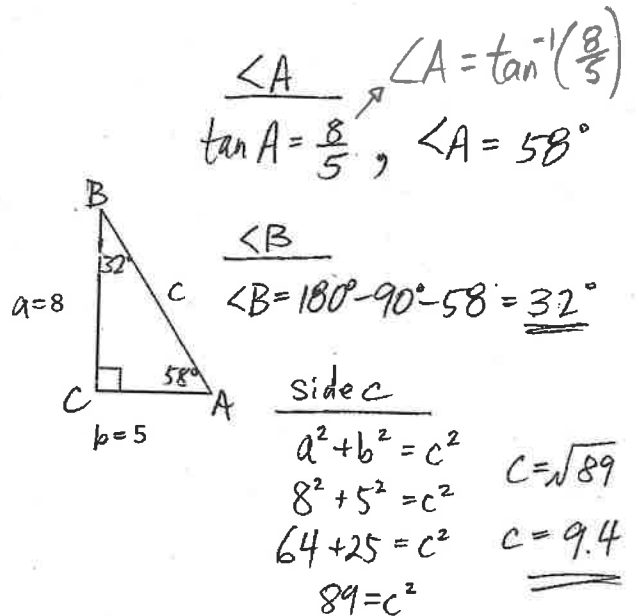 <A
∠A = tan⁻¹(8/5)
tan A = 8/5 , <A = 58°
B
32°
a=8
c
C
58°
A
b=5
<B
<B = 180° - 90° - 58 = 32°
side c
a² + b² = c²
8² + 5² = c²
64 + 25 = c²
89 = c²
c = √89
c = 9.4